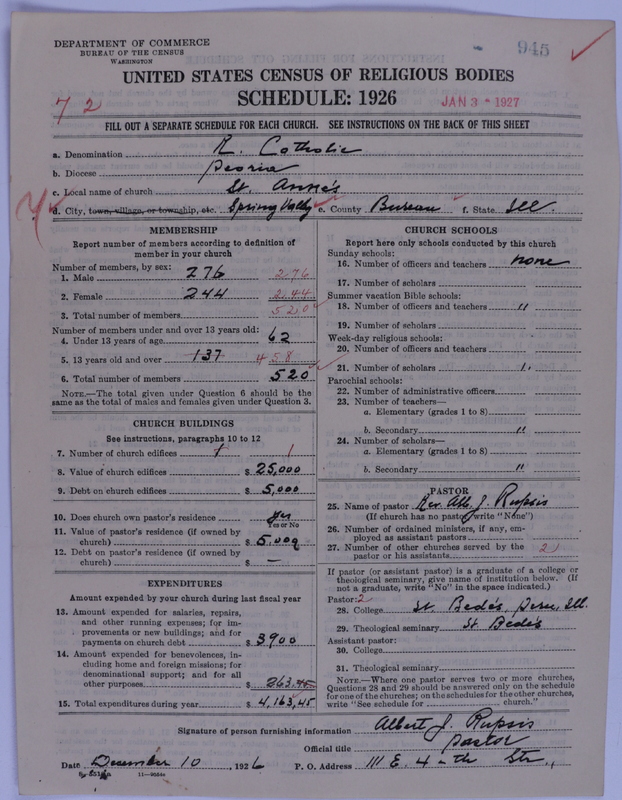 945
DEPARTMENT OF COMMERCE
BUREAU OF THE CENSUS
WASHINGTON
UNITED STATES CENSUS OF RELIGIOUS BODIES
SCHEDULE: 1926
72
JAN 3 - 1927
FILL OUT A SEPARATE SCHEDULE FOR EACH CHURCH. SEE INSTRUCTIONS ON THE BACK OF THIS SHEET
a. Denomination R. Catholic
b. Diocese Peoria
c. Local name of church St. Anne's
d. City, town, village, or township, etc. Spring Valley e. County Bureau f. State Ill
MEMBERSHIP
Report number of members according to definition of
member in your church
Number of members, by sex:
1. Male 276 276
2. Female 244 244
3. Total number of members 520
Number of members under and over 13 years old:
4. Under 13 years of age 62
5. 13 years old and over 137 458
6. Total number of members 520
NOTE.—The total given under Question 6 should be
same as the total of males and females given under Question 3.
CHURCH BUILDINGS
See instructions, paragraphs 10 to 12
7. Number of church edifices 1 1
8. Value of church edifices $ 25,000
9. Debt on church edifices $ 5,000
10. Does church own pastor's residence yes
Yes or No
11. Value of pastor's residence (if owned by
church) $ 5,000
12. Debt on pastor's residence (if owned by
church) $ —
EXPENDITURES
Amount expended by your church during last fiscal year
13. Amount expended for salaries, repairs,
and other running expenses; for im-
provements or new buildings; and for
payments on church debt $ 3900
14. Amount expended for benevolences, in-
cluding home and foreign missions; for
denominational support; and for all
other purposes $ 263.45
15. Total expenditures during year $ 4,163,45
CHURCH SCHOOLS
Report here only schools conducted by this church
Sunday schools:
16. Number of officers and teachers none
17. Number of scholars
Summer vacation Bible schools:
18. Number of officers and teachers "
19. Number of scholars
Week-day religious schools:
20. Number of officers and teachers
21. Number of scholars "
Parochial schools:
22. Number of administrative officers
23. Number of teachers—
a. Elementary (grades 1 to 8)
b. Secondary "
24. Number of scholars—
a. Elementary (grades 1 to 8)
b. Secondary "
PASTOR
25. Name of pastor Rev. Alb. J. Rupsis
(If church has no pastor, write "None")
26. Number of ordained ministers, if any, em-
ployed as assistant pastors
27. Number of other churches served by the
pastor or his assistants 2
If pastor (or assistant pastor) is a graduate of a college or
theological seminary, give name of institution below. (If
not a graduate, write "No" in the space indicated.)
Pastor: 2
28. College St Bede's, Peru, Ill.
29. Theological seminary St Bede's
Assistant pastor:
30. College
31. Theological seminary
NOTE.—Where one pastor serves two or more churches,
Questions 28 and 29 should be answered only on the schedule
for one of the churches; on the schedules for the other churches,
write "See schedule for church."
Signature of person furnishing information Albert J. Rupsis
Official title Pastor
Date December 10, 1926 P. O. Address 111 E. 4-th Str.,